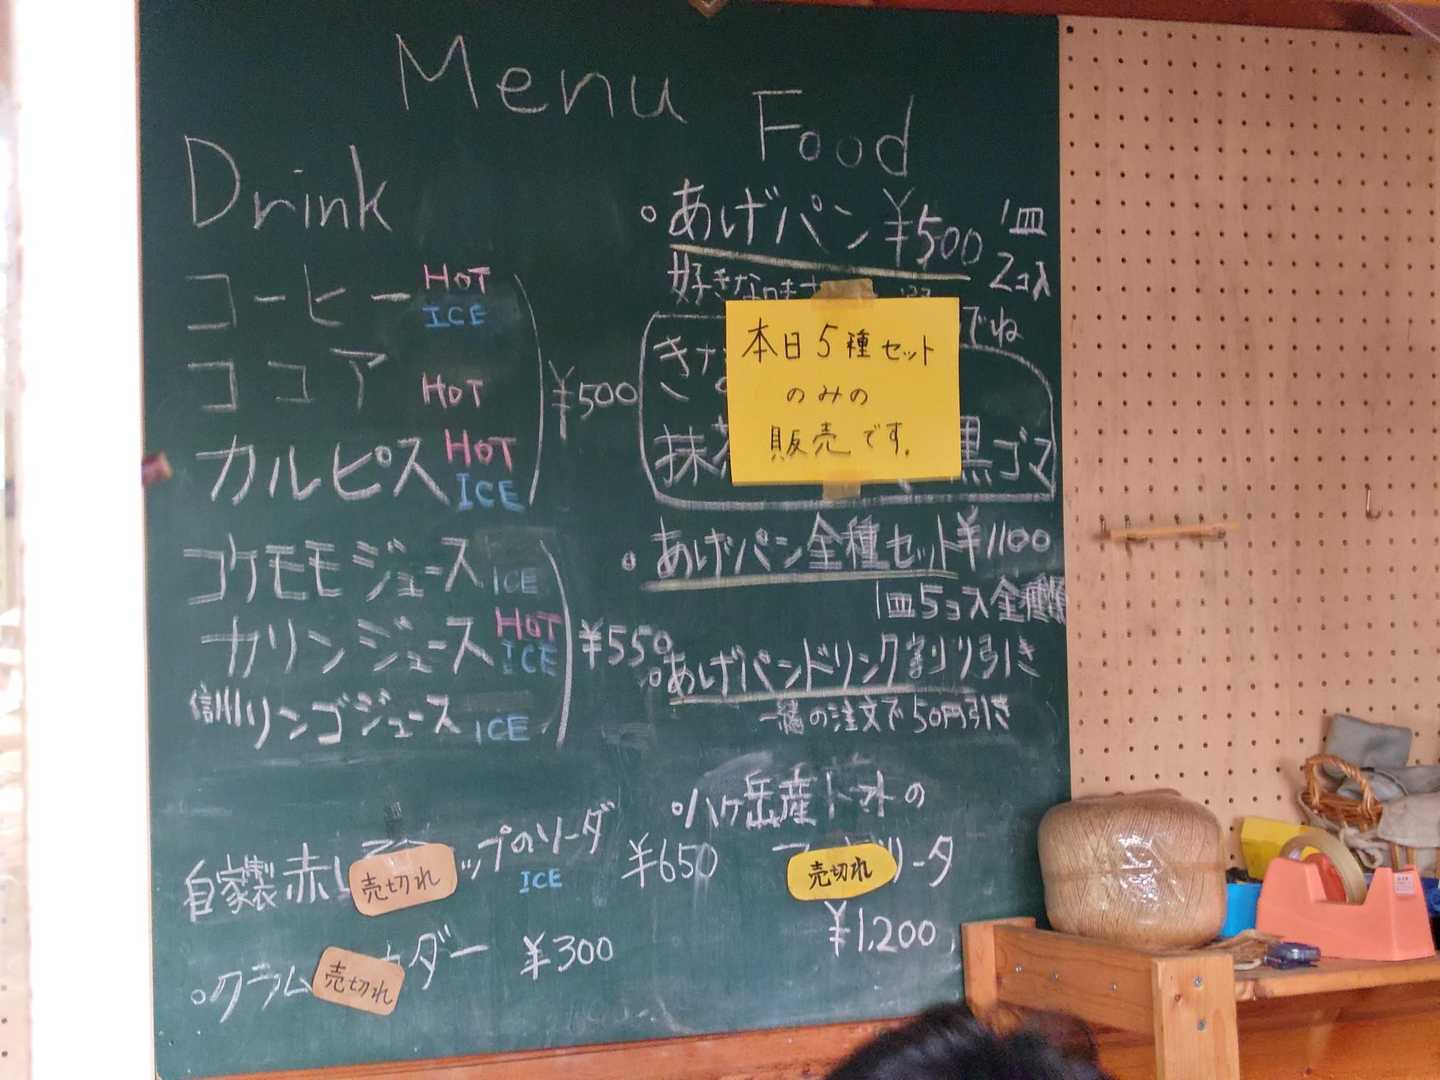 Menu
Drink
コーヒー HOT ICE
ココア HOT
カルピス HOT ICE
¥500
コケモモジュース ICE
カリンジュース HOT ICE
信州リンゴジュース ICE
¥550
自家製赤 売切れ ップのソーダ ICE ¥650
○クラム 売切れ ダー ¥300
Food
○あげパン ¥500 1皿 2コ入
好きな
でね
本日5種セット
のみの
販売です。
きな
抹茶 黒ゴマ
○あげパン全種セット ¥1100
1皿5コ入全種類
○あげパンドリンク割り引き
一緒の注文で50円引き
○八ヶ岳産トマトの
売切れ リータ
¥1,200